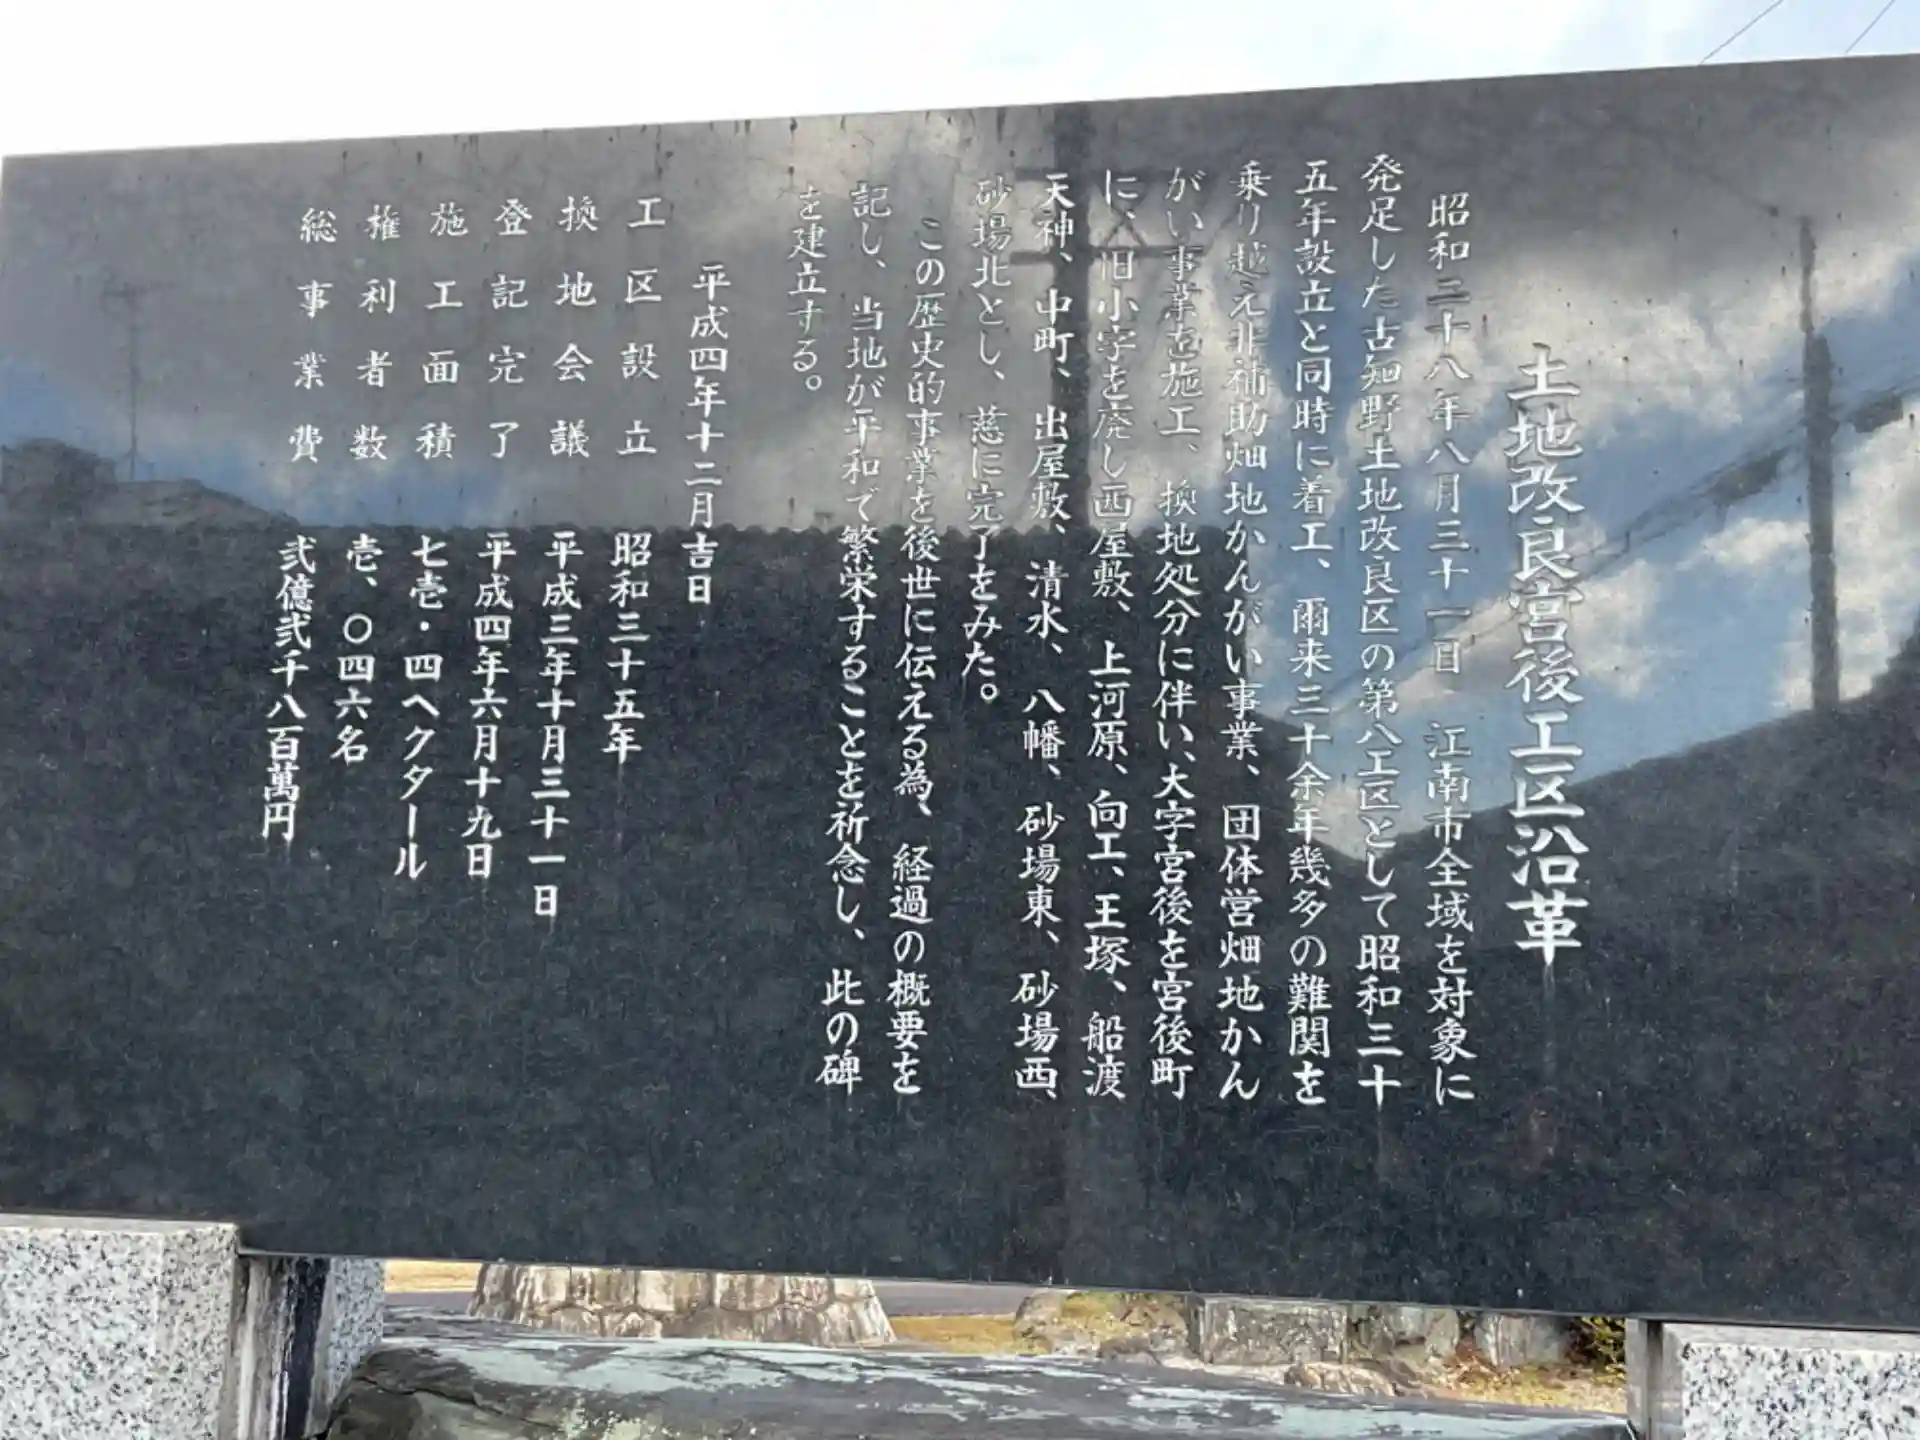 土地改良宮後工区沿革
昭和二十八年八月三十一日 江南市全域を対象に
発足した古知野土地改良区の第八工区として昭和三十
五年設立と同時に着工、爾来三十余年幾多の難関を
乗り越え非補助畑地かんがい事業、団体営畑地かん
がい事業を施工、換地処分に伴い、大字宮後を宮後町
に、旧小字を廃し西屋敷、上河原、向工、王塚、船渡
天神、中町、出屋敷、清水、八幡、砂場東、砂場西、
砂場北とし、慈に完了をみた。
この歴史的事業を後世に伝える為、経過の概要を
記し、当地が平和で繁栄することを祈念し、此の碑
を建立する。
平成四年十二月吉日
工区設立 昭和三十五年
換地会議 平成三年十月三十一日
登記完了 平成四年六月十九日
施工面積 七壱・四ヘクタール
権利者数 壱、〇四六名
総事業費 弐億弐千八百萬円